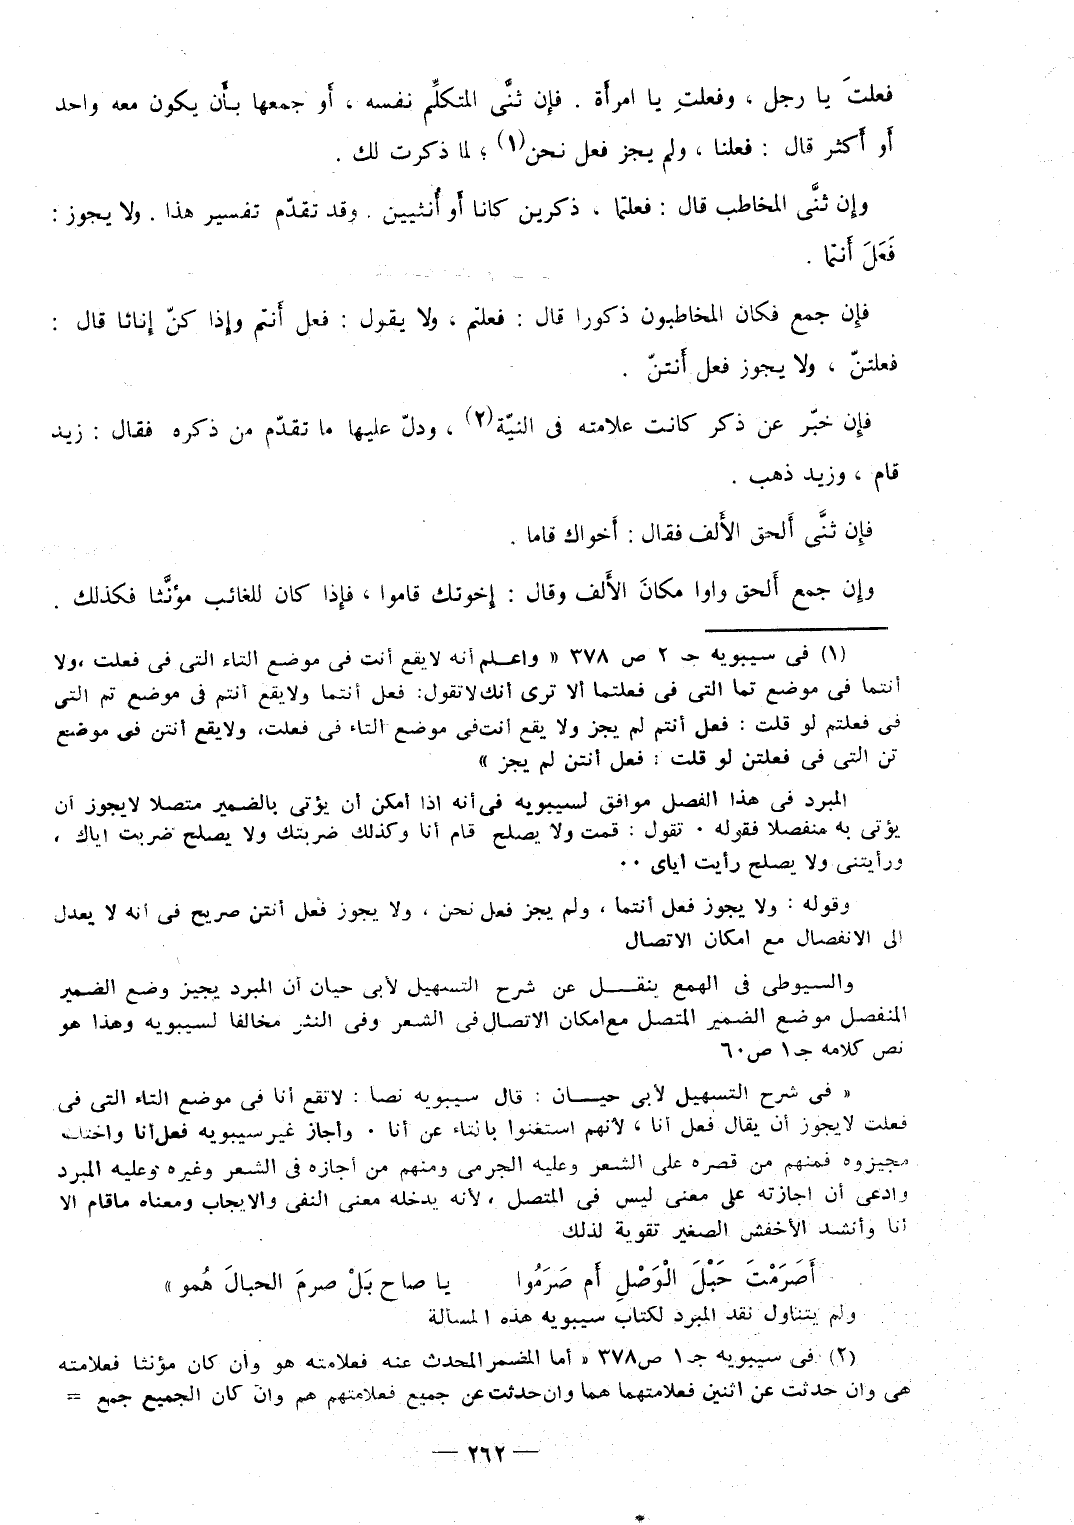 فعلتَ يا رجل ، وفعلتِ يا امرأة . فإن ثنَّى المتكلِّم نفسه ، أو جمعها بأن يكون معه واحد
أو أكثر قال : فعلنا ، ولم يجز فعل نحن(١) ؛ لما ذكرت لك .
وإن ثنَّى المخاطب قال : فعلتما ، ذكرين كانا أو أُنثيين . وقد تقدّم تفسير هذا . ولا يجوز :
فَعَلَ أنتما .
فإن جمع فكان المخاطبون ذكورا قال : فعلتم ، ولا يقول : فعل أنتم وإذا كنّ إناثا قال :
فعلتنّ ، ولا يجوز فعل أنتنّ .
فإن خبّر عن ذكر كانت علامته فى النيّة(٢) ، ودلّ عليها ما تقدّم من ذكره فقال : زيد
قام ، وزيد ذهب .
فإن ثنَّى ألحق الألف فقال : أخواك قاما .
وإن جمع ألحق واوا مكانَ الألف وقال : إخوتك قاموا ، فإذا كان للغائب مؤنَّثا فكذلك .
(١) فى سيبويه جـ ٢ ص ٣٧٨ « واعـلم أنه لايقع أنت فى موضع التاء التى فى فعلت ،ولا
أنتما فى موضع تما التى فى فعلتما ألا ترى أنك لاتقول: فعل أنتما ولايقع أنتم فى موضع تم التى
فى فعلتم لو قلت : فعل أنتم لم يجز ولا يقع أنت فى موضع التاء فى فعلت، ولايقع أنتن فى موضع
تن التى فى فعلتن لو قلت : فعل أنتن لم يجز »
المبرد فى هذا الفصل موافق لسيبويه فى أنه اذا أمكن أن يؤتى بالضمير متصلا لايجوز أن
يؤتى به منفصلا فقوله ٠ تقول : قمت ولا يصلح قام أنا وكذلك ضربتك ولا يصلح ضربت اياك ،
ورأيتنى ولا يصلح رأيت اياى ٠٠
وقوله : ولا يجوز فعل أنتما ، ولم يجز فعل نحن ، ولا يجوز فعل أنتن صريح فى أنه لا يعدل
الى الانفصال مع امكان الاتصال
والسيوطى فى الهمع ينقـــل عن شرح التسهيل لأبى حيان أن المبرد يجيز وضع الضمير
المنفصل موضع الضمير المتصل مع امكان الاتصال فى الشعر وفى النثر مخالفا لسيبويه وهذا هو
نص كلامه جـ١ ص٦٠
« فى شرح التسهيل لأبى حيـــان : قال سيبويه نصا : لاتقع أنا فى موضع التاء التى فى
فعلت لايجوز أن يقال فعل أنا ، لأنهم استغنوا بالتاء عن أنا ٠ وأجاز غير سيبويه فعل أنا واختلف
مجيزوه فمنهم من قصره على الشعر وعليه الجرمى ومنهم من أجازه فى الشعر وغيره وعليه المبرد
وادعى أن اجازته على معنى ليس فى المتصل ، لأنه يدخله معنى النفى والايجاب ومعناه ماقام الا
أنا وأنشد الأخفش الصغير تقوية لذلك
أَصَرَمْتَ حَبْلَ الْوَصْلِ أم صَرَمُوا يا صاح بَلْ صرمَ الحبالَ هُمو »
ولم يتناول نقد المبرد لكتاب سيبويه هذه المسألة
(٢) فى سيبويه جـ١ ص٣٧٨ « أما المضمر المحدث عنه فعلامته هو وأن كان مؤنثا فعلامته
هى وان حدثت عن اثنين فعلامتهما هما وان حدثت عن جميع فعلامتهم هم وان كان الجميع جمع =
— ٢٦٢ —